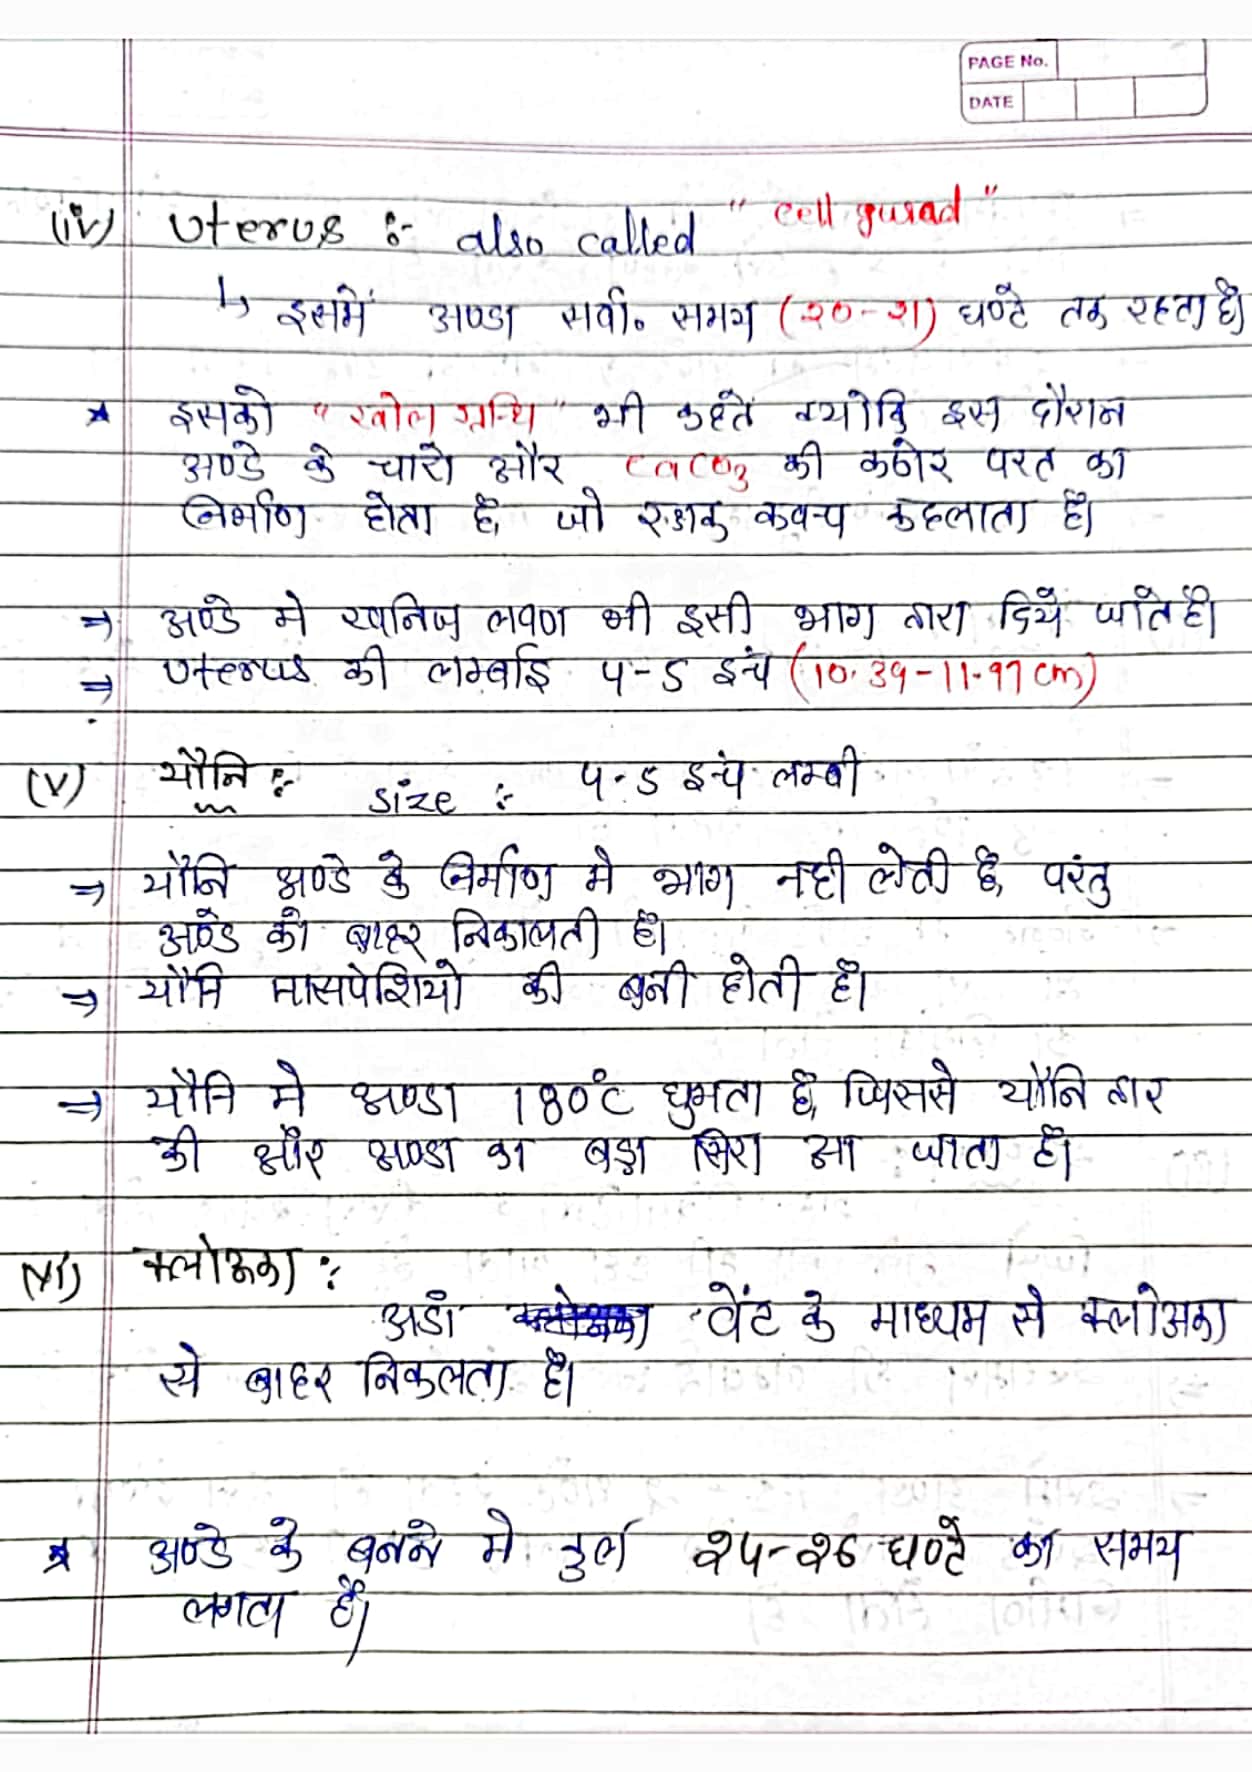 PAGE No.
DATE
(iv) Uterus :- also called "cell gurad"
↳ इसमें अण्डा सर्वा. समय (२०-२१) घण्टे तक रहता है।
★ इसको "खोल ग्रन्थि" भी कहते क्योकि इस दौरान
अण्डे के चारो और CaCO3 की कठोर परत का
निर्माण होता है, जो रक्षक कवच कहलाता है।
⇒ अण्डे मे खनिज लवण भी इसी भाग द्वारा दिये जाते है।
⇒ Uterus की लम्बाई ५-5 इन्च (10.39-11.97 cm)
(v) यौनि :- size :- ५-5 इन्च लम्बी
⇒ यौनि अण्डे के निर्माण मे भाग नही लेती है, परंतु
अण्डे को बाहर निकालती है।
⇒ यौनि मासपेशियो की बनी होती है।
⇒ यौनि मे अण्डा 180℃ घुमता है, जिससे यौनि द्वार
की और अण्डा का बड़ा सिरा आ जाता है।
(vi) क्लोअका :
अडां वेंट के माध्यम से क्लोअका
से बाहर निकलता है।
★ अण्डे के बनने मे कुल २५-२६ घण्टे का समय
लगता है।